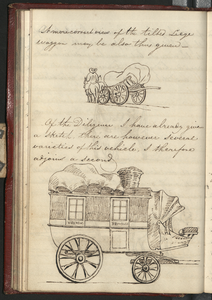 A                view of the tilted Large
waggon may be also thus given —
Of the Diligence I have already given
a sketch. There are however several
varieties of this vehicle, I therefore
adjoin a second.